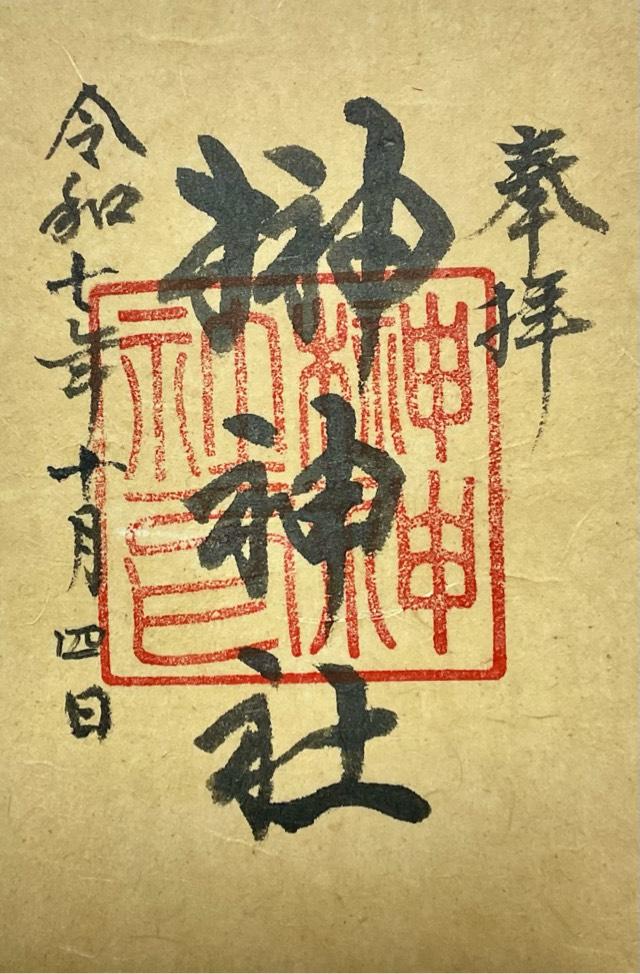 奉拝
榊神社
令和七年十月四日
榊神社印